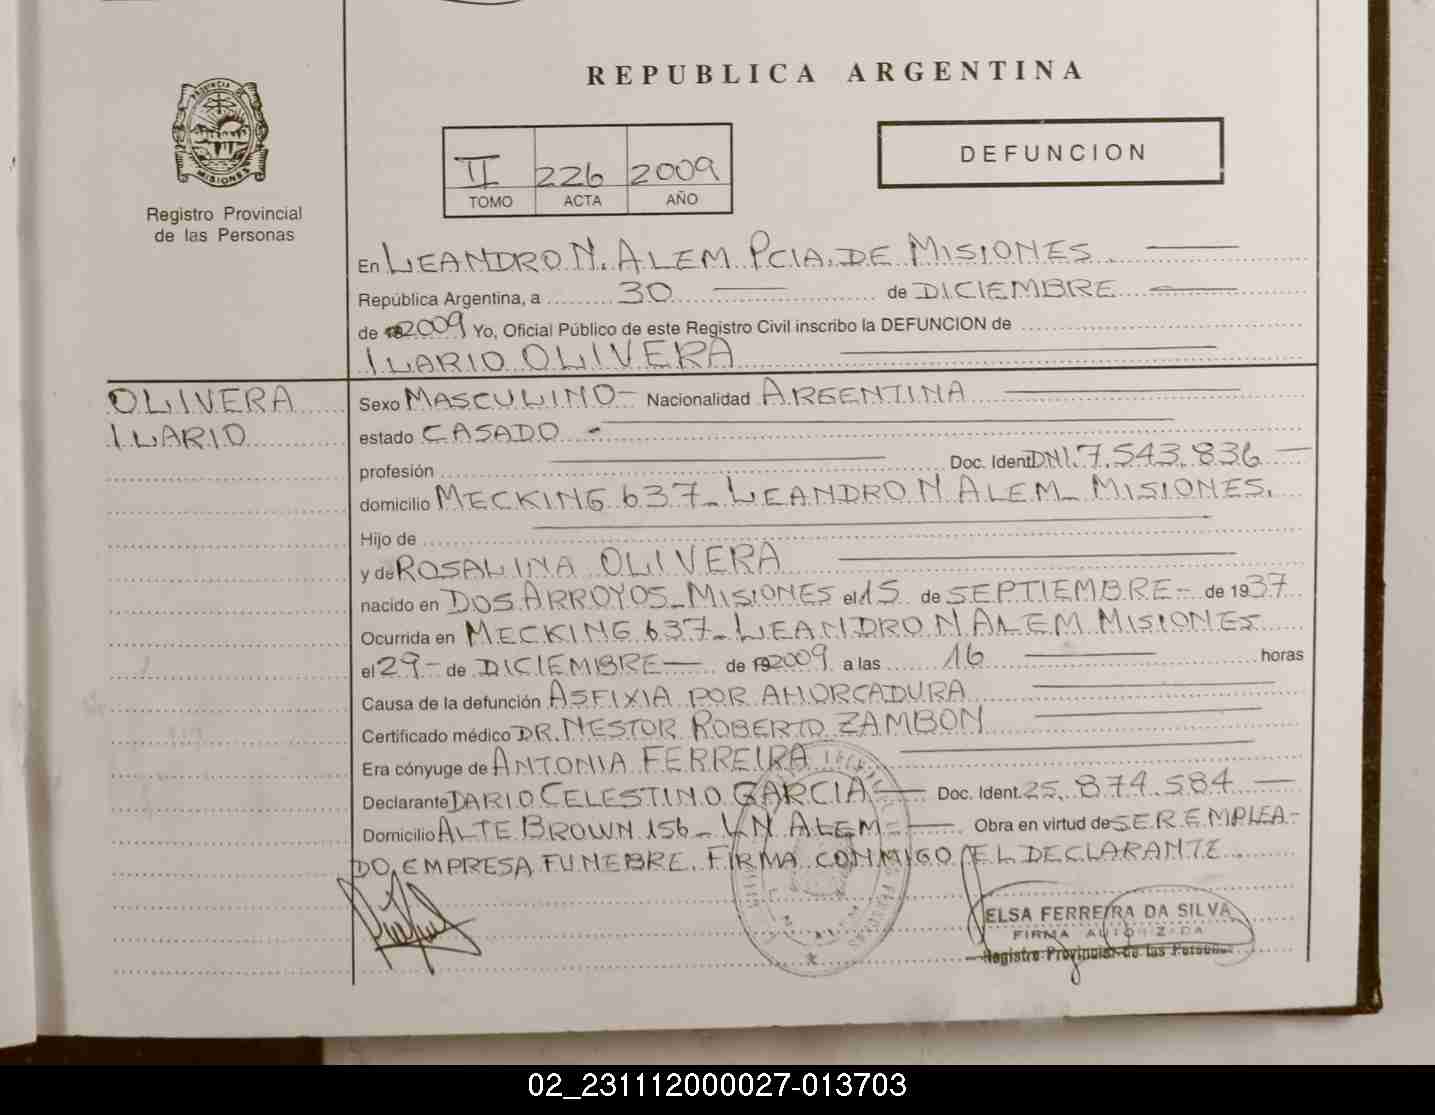 REPUBLICA ARGENTINA
PROVINCIA DE
MISIONES
Registro Provincial
de las Personas
II 226 2009
TOMO ACTA AÑO
DEFUNCION
En LEANDRO N. ALEM PCIA. DE MISIONES
República Argentina, a 30 de DICIEMBRE
de 2009 Yo, Oficial Público de este Registro Civil inscribo la DEFUNCION de
ILARIO OLIVERA
OLIVERA
ILARIO
Sexo MASCULINO- Nacionalidad ARGENTINA
estado CASADO -
profesión Doc. Ident DNI. 7.543.836 -
domicilio MECKING 637- LEANDRO N ALEM- MISIONES.
Hijo de
y de ROSALINA OLIVERA
nacido en DOS ARROYOS- MISIONES el 15 de SEPTIEMBRE- de 1937
Ocurrida en MECKING 637- LEANDRO N ALEM MISIONES
el 29- de DICIEMBRE- de 2009 a las 16 horas
Causa de la defunción ASFIXIA POR AHORCADURA
Certificado médico DR. NESTOR ROBERTO ZAMBON
Era cónyuge de ANTONIA FERREIRA
Declarante DARIO CELESTINO GARCIA- Doc. Ident. 25.874.584 -
Domicilio ALTE BROWN 156- L N ALEM- Obra en virtud de SER EMPLEA-
DO, EMPRESA FUNEBRE. FIRMA CONMIGO EL DECLARANTE
ELSA FERREIRA DA SILVA
FIRMA AUTORIZADA
Registro Provincial de las Personas
02_231112000027-013703